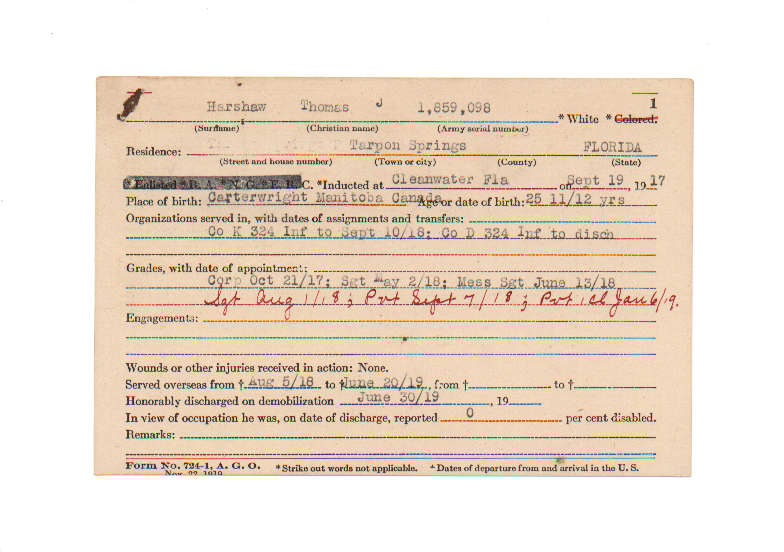 1
Harshaw Thomas J 1,859,098
* White * Colored.
(Surname) (Christian name) (Army serial number)
Residence: Tarpon Springs FLORIDA
(Street and house number) (Town or city) (County) (State)
* Enlisted * R. A. * N. G. * E. R. C. *Inducted at Clearwater Fla on Sept 19, 1917
Place of birth: Carterwright Manitoba Canada Age or date of birth: 25 11/12 yrs
Organizations served in, with dates of assignments and transfers:
Co K 324 Inf to Sept 10/18; Co D 324 Inf to disch
Grades, with date of appointment:
Corp Oct 21/17; Sgt May 2/18; Mess Sgt June 13/18
Sgt Aug 1/18; Pvt Sept 7/18; Pvt 1cl Jan 6/19.
Engagements:
Wounds or other injuries received in action: None.
Served overseas from † Aug 5/18 to † June 20/19, from † to †
Honorably discharged on demobilization June 30/19, 19
In view of occupation he was, on date of discharge, reported 0 per cent disabled.
Remarks:
Form No. 724-1, A. G. O. *Strike out words not applicable. †Dates of departure from and arrival in the U. S.
Nov. 22, 1919